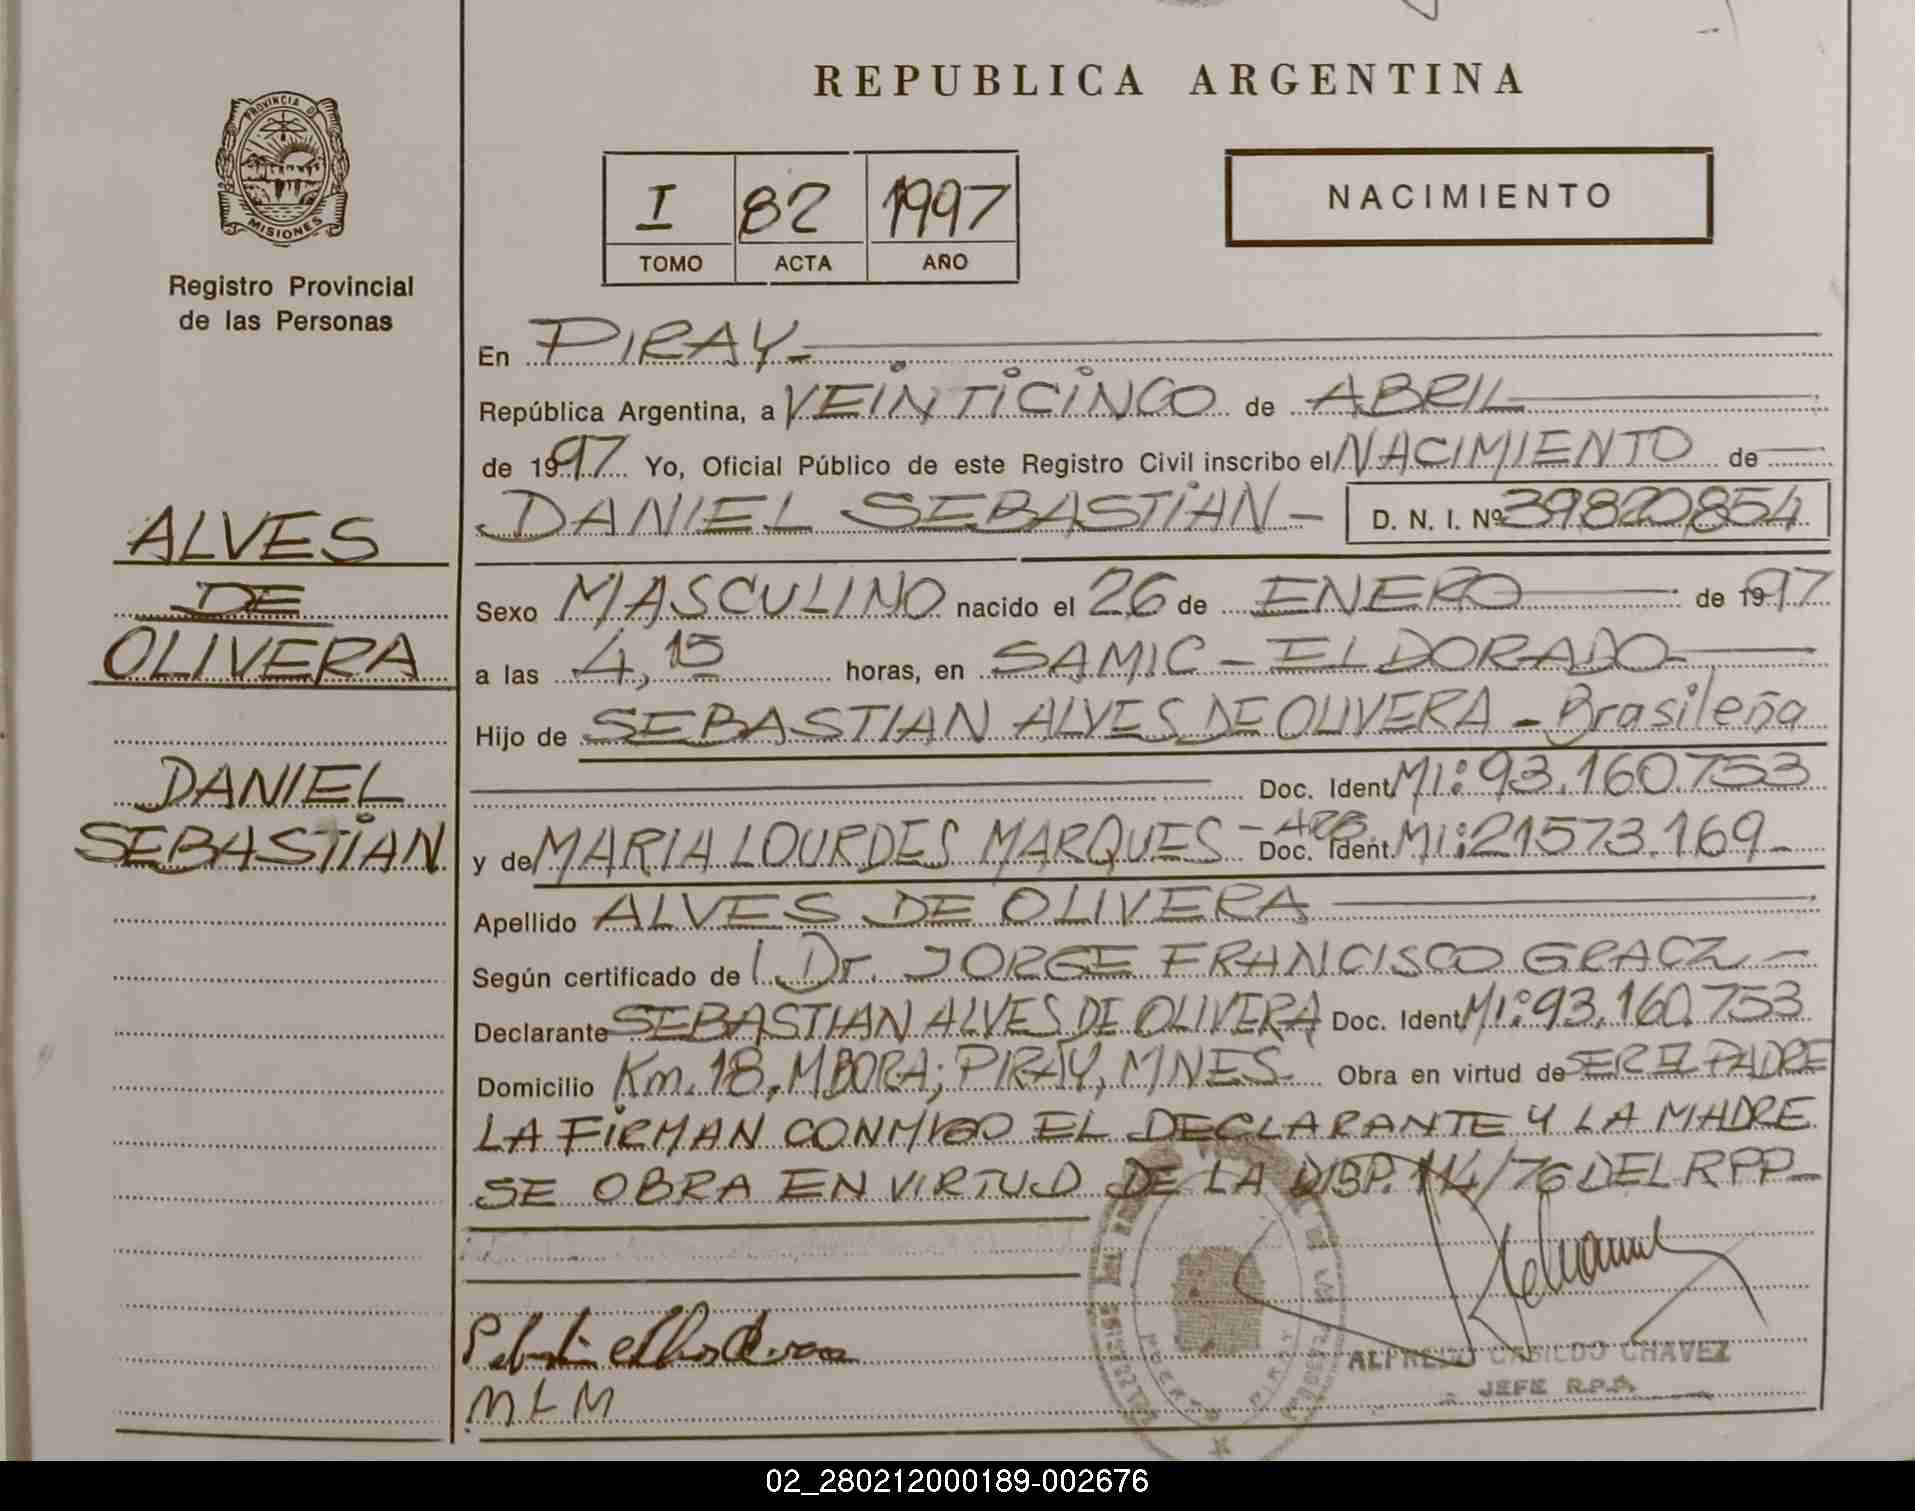 REPUBLICA ARGENTINA
PROVINCIA DE
MISIONES
Registro Provincial
de las Personas
I 82 1997
TOMO ACTA AÑO
NACIMIENTO
En PIRAY
República Argentina, a VEINTICINCO de ABRIL
de 1997 Yo, Oficial Público de este Registro Civil inscribo el NACIMIENTO de
DANIEL SEBASTIAN - D. N. I. Nº 39820854
ALVES
DE
OLIVERA
DANIEL
SEBASTIAN
Sexo MASCULINO nacido el 26 de ENERO de 1997
a las 4,15 horas, en SAMIC - ELDORADO
Hijo de SEBASTIAN ALVES DE OLIVERA - Brasileña
Doc. Ident. MI: 93.160.753
y de MARIA LOURDES MARQUES - ARG. Doc. Ident. MI: 21573.169 -
Apellido ALVES DE OLIVERA
Según certificado de l Dr. JORGE FRANCISCO GRACZ -
Declarante SEBASTIAN ALVES DE OLIVERA Doc. Ident. MI: 93.160.753
Domicilio Km. 18, MBORA; PIRAY, MNES. Obra en virtud de SER EL PADRE
LA FIRMAN CONMIGO EL DECLARANTE Y LA MADRE
SE OBRA EN VIRTUD DE LA DISP. 114/76 DEL RPP -
MLM
ALFREDO CASILDO CHAVEZ
JEFE R.P.P.
02_280212000189-002676